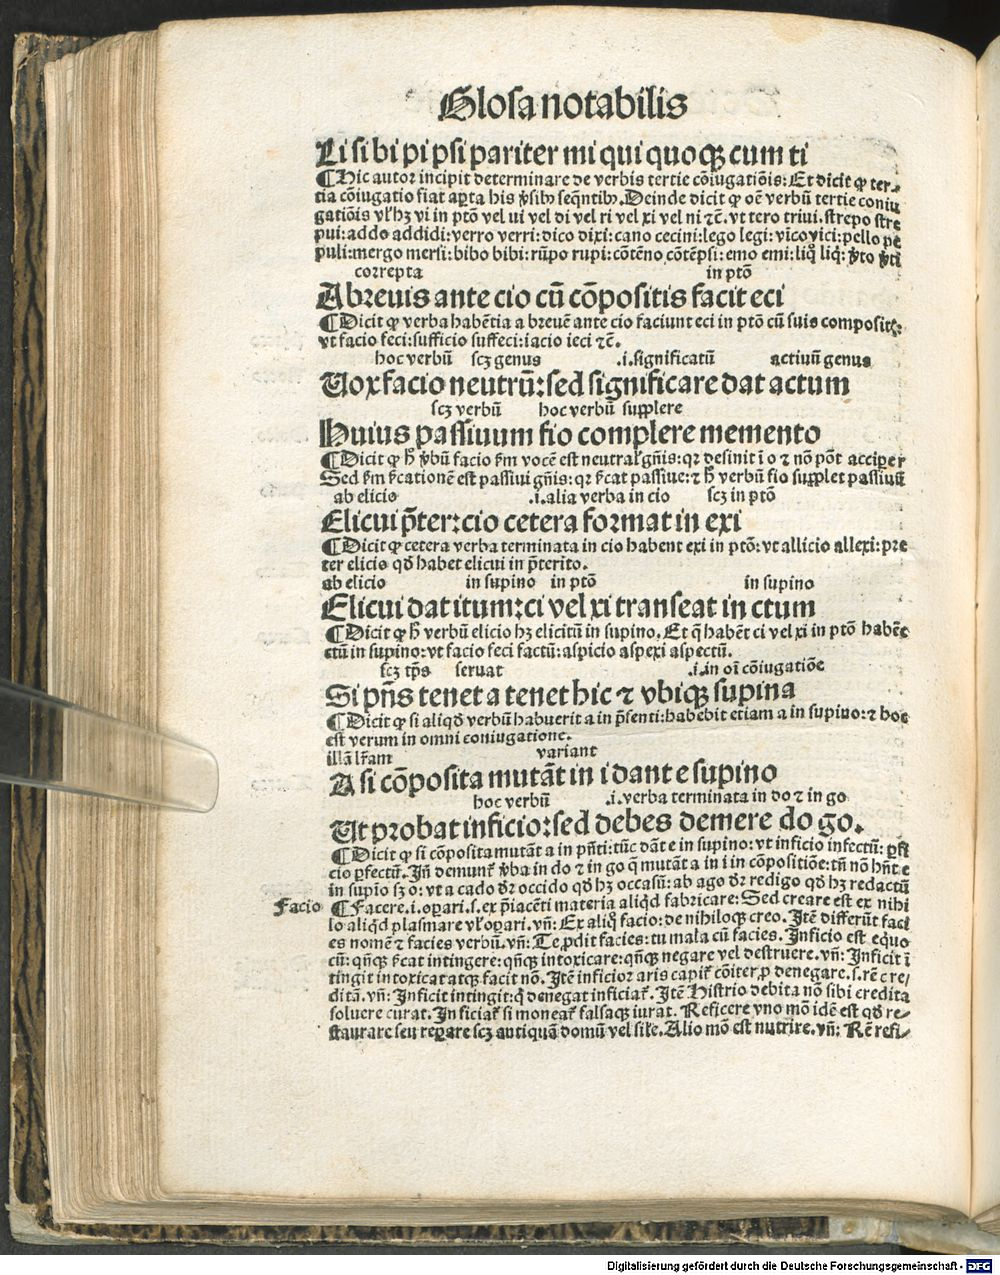 Glosa notabilis
Li si bi pi psi pariter mi qui quoqꝫ cum ti
¶ Hic autor incipit determinare de verbis tertie cōiugatiōis: Et dicit ꝙ ter⸗
tia cōiugatio fiat aꝑta his v̓sibꝰ seqn̄tibꝰ. Deinde dicit ꝙ oē verbū tertie coniu
gatiōis vl̓ hꝫ vi in ptō vel ui vel di vel ri vel xi vel ni ⁊c̄. vt tero triui. strepo stre
pui: addo addidi: verro verri: dico dixi: cano cecini: lego legi: vīco vici: pello pe
puli: mergo mersi: bibo bibi: rūpo rupi: cōtēno cōtēpsi: emo emi: liq̄ liq̄: v̓to v̓ti
correpta in ptō
A breuis ante cio cū cōpositis facit eci
¶ Dicit ꝙ verba habētia a breuē ante cio faciunt eci in ptō cū suis compositꝭ:
vt facio feci: sufficio suffeci: iacio ieci ⁊c̄.
hoc verbū scꝫ genus .i. significatū actiuū genus
Uox facio neutrū: sed significare dat actum
scꝫ verbū hoc verbū supplere
Huius passiuum fio complere memento
¶ Dicit ꝙ h̓ v̓bū facio s̓m vocē est neutral̓ gn̄is: qr desinit ī o ⁊ nō pōt acciper r
Sed s̓m s̓cationē est passiui gn̄is: qr s̓cat passiue: ⁊ h̓ verbū fio supplet passiuū
ab elicio .i. alia verba in cio scꝫ in ptō
Elicui p̄ter: cio cetera format in exi
¶ Dicit ꝙ cetera verba terminata in cio habent exi in ptō: vt allicio allexi: pre
ter elicio qd̄ habet elicui in p̄terito.
ab elicio in supino in ptō in supino
Elicui dat itum: ci vel xi transeat in ctum
¶ Dicit ꝙ h̓ verbū elicio hꝫ elicitū in supino. Et q̄ habēt ci vel xi in ptō habēt
ctū in supino: vt facio feci factū: aspicio aspexi aspectū.
scꝫ tp̄s seruat .i. in oī cōiugatiōe
Si pn̄s tenet a tenet hic ⁊ vbiqꝫ supina
¶ Dicit ꝙ si aliqd̄ verbū habuerit a in p̄senti: habebit etiam a in supino: ⁊ hoc
est verum in omni coniugatione.
illā lr̄am variant
A si cōposita mutāt in i dant e supino
hoc verbū .i. verba terminata in do ⁊ in go
Ut probat inficio: sed debes demere do go.
¶ Dicit ꝙ si cōposita mutāt a in pn̄ti: tūc dāt e in supino: vt inficio infectū: ꝑfi
cio ꝑfectū. Jn̄ demunt̓ v̓ba in do ⁊ in go q̄ mutāt a in i in cōpositiōe: tn̄ nō hn̄t e
in supīo sꝫ o: vt a cado d̄r occido qd̄ hꝫ occasū: ab ago d̄r redigo qd̄ hꝫ redactū
Facio ¶ Facere .i. oꝑari .s. ex p̄iacēti materia aliqd̄ fabricare: Sed creare est ex nihi
lo aliqd̄ plasmare vl̓ oꝑari. vn̄: Ex aliq̄ facio: de nihiloqꝫ creo. Jtē differūt faci
es nomē ⁊ facies verbū. vn̄: Te ꝓdit facies: tu mala cū facies. Jnficio est equo
cū: qn̄qꝫ s̓cat intingere: qn̄qꝫ intoxicare: qn̄qꝫ negare vel destruere. vn̄: Jnficit ī
tingit intoxicat atqꝫ facit nō. Jtē inficior aris capit̓ cōiter ꝓ denegare .s. rē cre⸗
ditā. vn̄: Jnficit intingit: q̄ denegat inficiat̓. Jtē Histrio debita nō sibi credita
soluere curat. Jnficiat̓ si moneat̓ falsaqꝫ iurat. Reficere vno mō idē est qd̄ re⸗
staurare seu reꝑare scꝫ antiquā domū vel sil̓e. Alio mō est nutrire. vn̄: Rē refi⸗
Digitalisierung gefördert durch die Deutsche Forschungsgemeinschaft - DFG